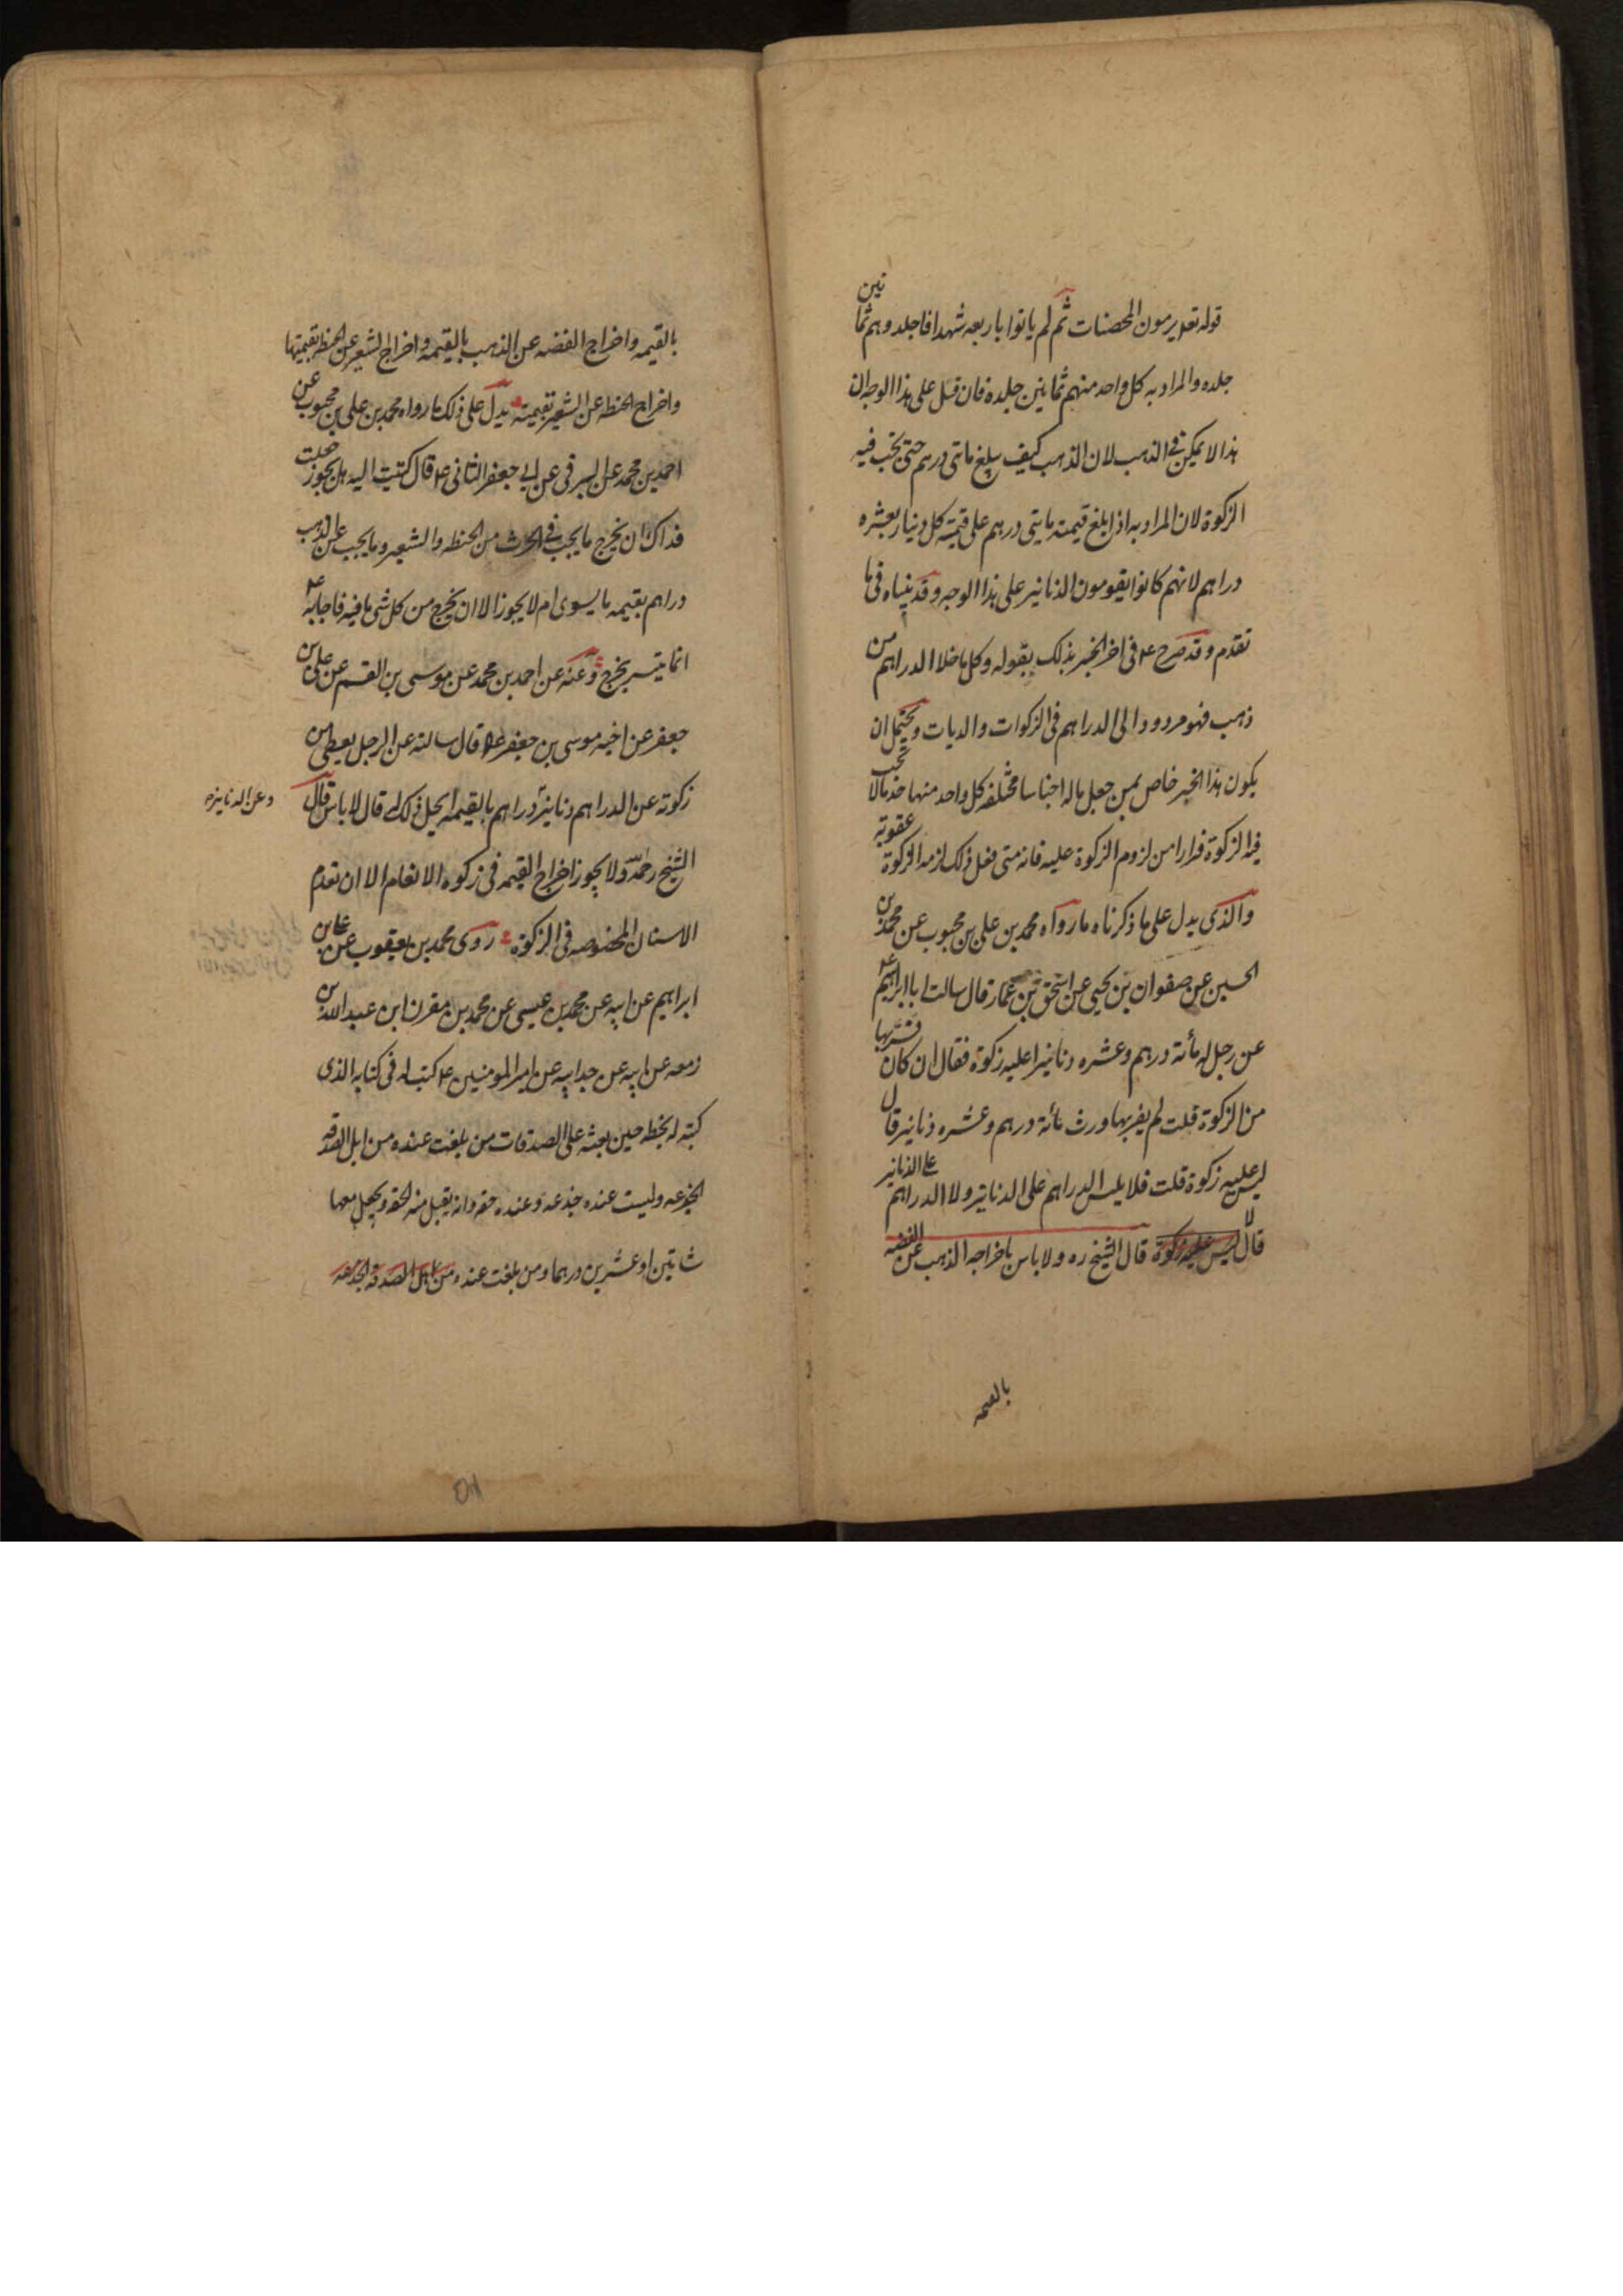 قوله تعه يرمون المحصنات ثم لم ياتوا باربعه شهدا فاجلدوهم ثمانين
جلده والمراد به كل واحد منهم ثمانين جلدة فان قيل على هذا الوجه ان
هذا لا يمكن في الذهب لان الذهب كيف يبلغ مائتي درهم حتى تجب فيه
الزكوة لان المراد به اذا بلغ قيمته مايتي درهم على قيمة كل دينار بعشره
دراهم لانهم كانوا يقومون الدنانير على هذا الوجه وقد بيناه في ما
تقدم وقد صرح ع في اخر الخبر بذلك بقوله وكل ما خلا الدراهم من
ذهب فهو مردود الى الدراهم في الزكوات والديات ويحتمل ان
يكون هذا الخبر خاص بمن جعل ماله اجناسا مختلفه كل واحد منها حد ما لا تجب
فيه الزكوة فرارا من لزوم الزكوة عليه فانه متى فعل ذلك لزمه الزكوة عقوبة
والذى يدل على ما ذكرناه ما رواه محمد بن على بن محبوب عن محمد بن
الحسين عن صفوان بن يحيى عن اسحق بن عمار قال سالت ابا ابراهيم ع
عن رجل له مأته درهم وعشره دنانير اعليه زكوة فقال ان كان فر بها
من الزكوة قلت لم يفر بها ورث مائة درهم وعشره دنانير قال
ليس عليه زكوة قلت فلا يلبس الدراهم على الدنانير ولا الدراهم على الدنانير
قال لا ليس عليه زكوة قال الشيخ ره ولا باس باخراجه الذهب عن الفضه
بالقيمه
بالقيمه واخراج الفضه عن الذهب بالقيمه واخراج الشعير عن الحنطه بقيمتها
واخراج الحنطه عن الشعير بقيمته يدل على ذلك ما رواه محمد بن على بن محبوب عن
احمد بن محمد عن البرقى عن ابي جعفر الثانى ع قال كتبت اليه هل يجوز جعلت
فداك ان يخرج ما يجب في الحرث من الحنطه والشعير وما يجب على الذهب
دراهم بقيمه ما يسوى ام لا يجوز الا ان يخرج من كل شى ما فيه فاجابه ع
انما تيسر يخرج وعنه عن احمد بن محمد عن موسى بن القسم عن على بن
جعفر عن اخيه موسى بن جعفر ع قال سالته عن الرجل يعطى من
زكوته عن الدراهم دنانير دراهم بالقيمه ايحل ذلك له قال لا باس قال
وعن الدنانيره
الشيخ رحمه الله ولا يجوز اخراج القيمه في زكوه الانعام الا ان تعدم
الاسنان المخصوصه في الزكوة روى محمد بن يعقوب عن على بن
ابراهيم عن ابيه عن محمد بن عيسى عن محمد بن مقرن ابن عبد الله بن
زمعه عن ابيه عن جد ابيه عن امير المومنين ع كتب له في كتابه الذى
كتبه له بخطه حين بعثه على الصدقات من بلغت عنده من ابل الصدقه
الجذعه وليست عنده جذعه وعنده حقه وانه يقبل منه الحقه ويجعل معها
شاتين او عشرين درهما ومن بلغت عنده من ابل الصدقه الجذعه